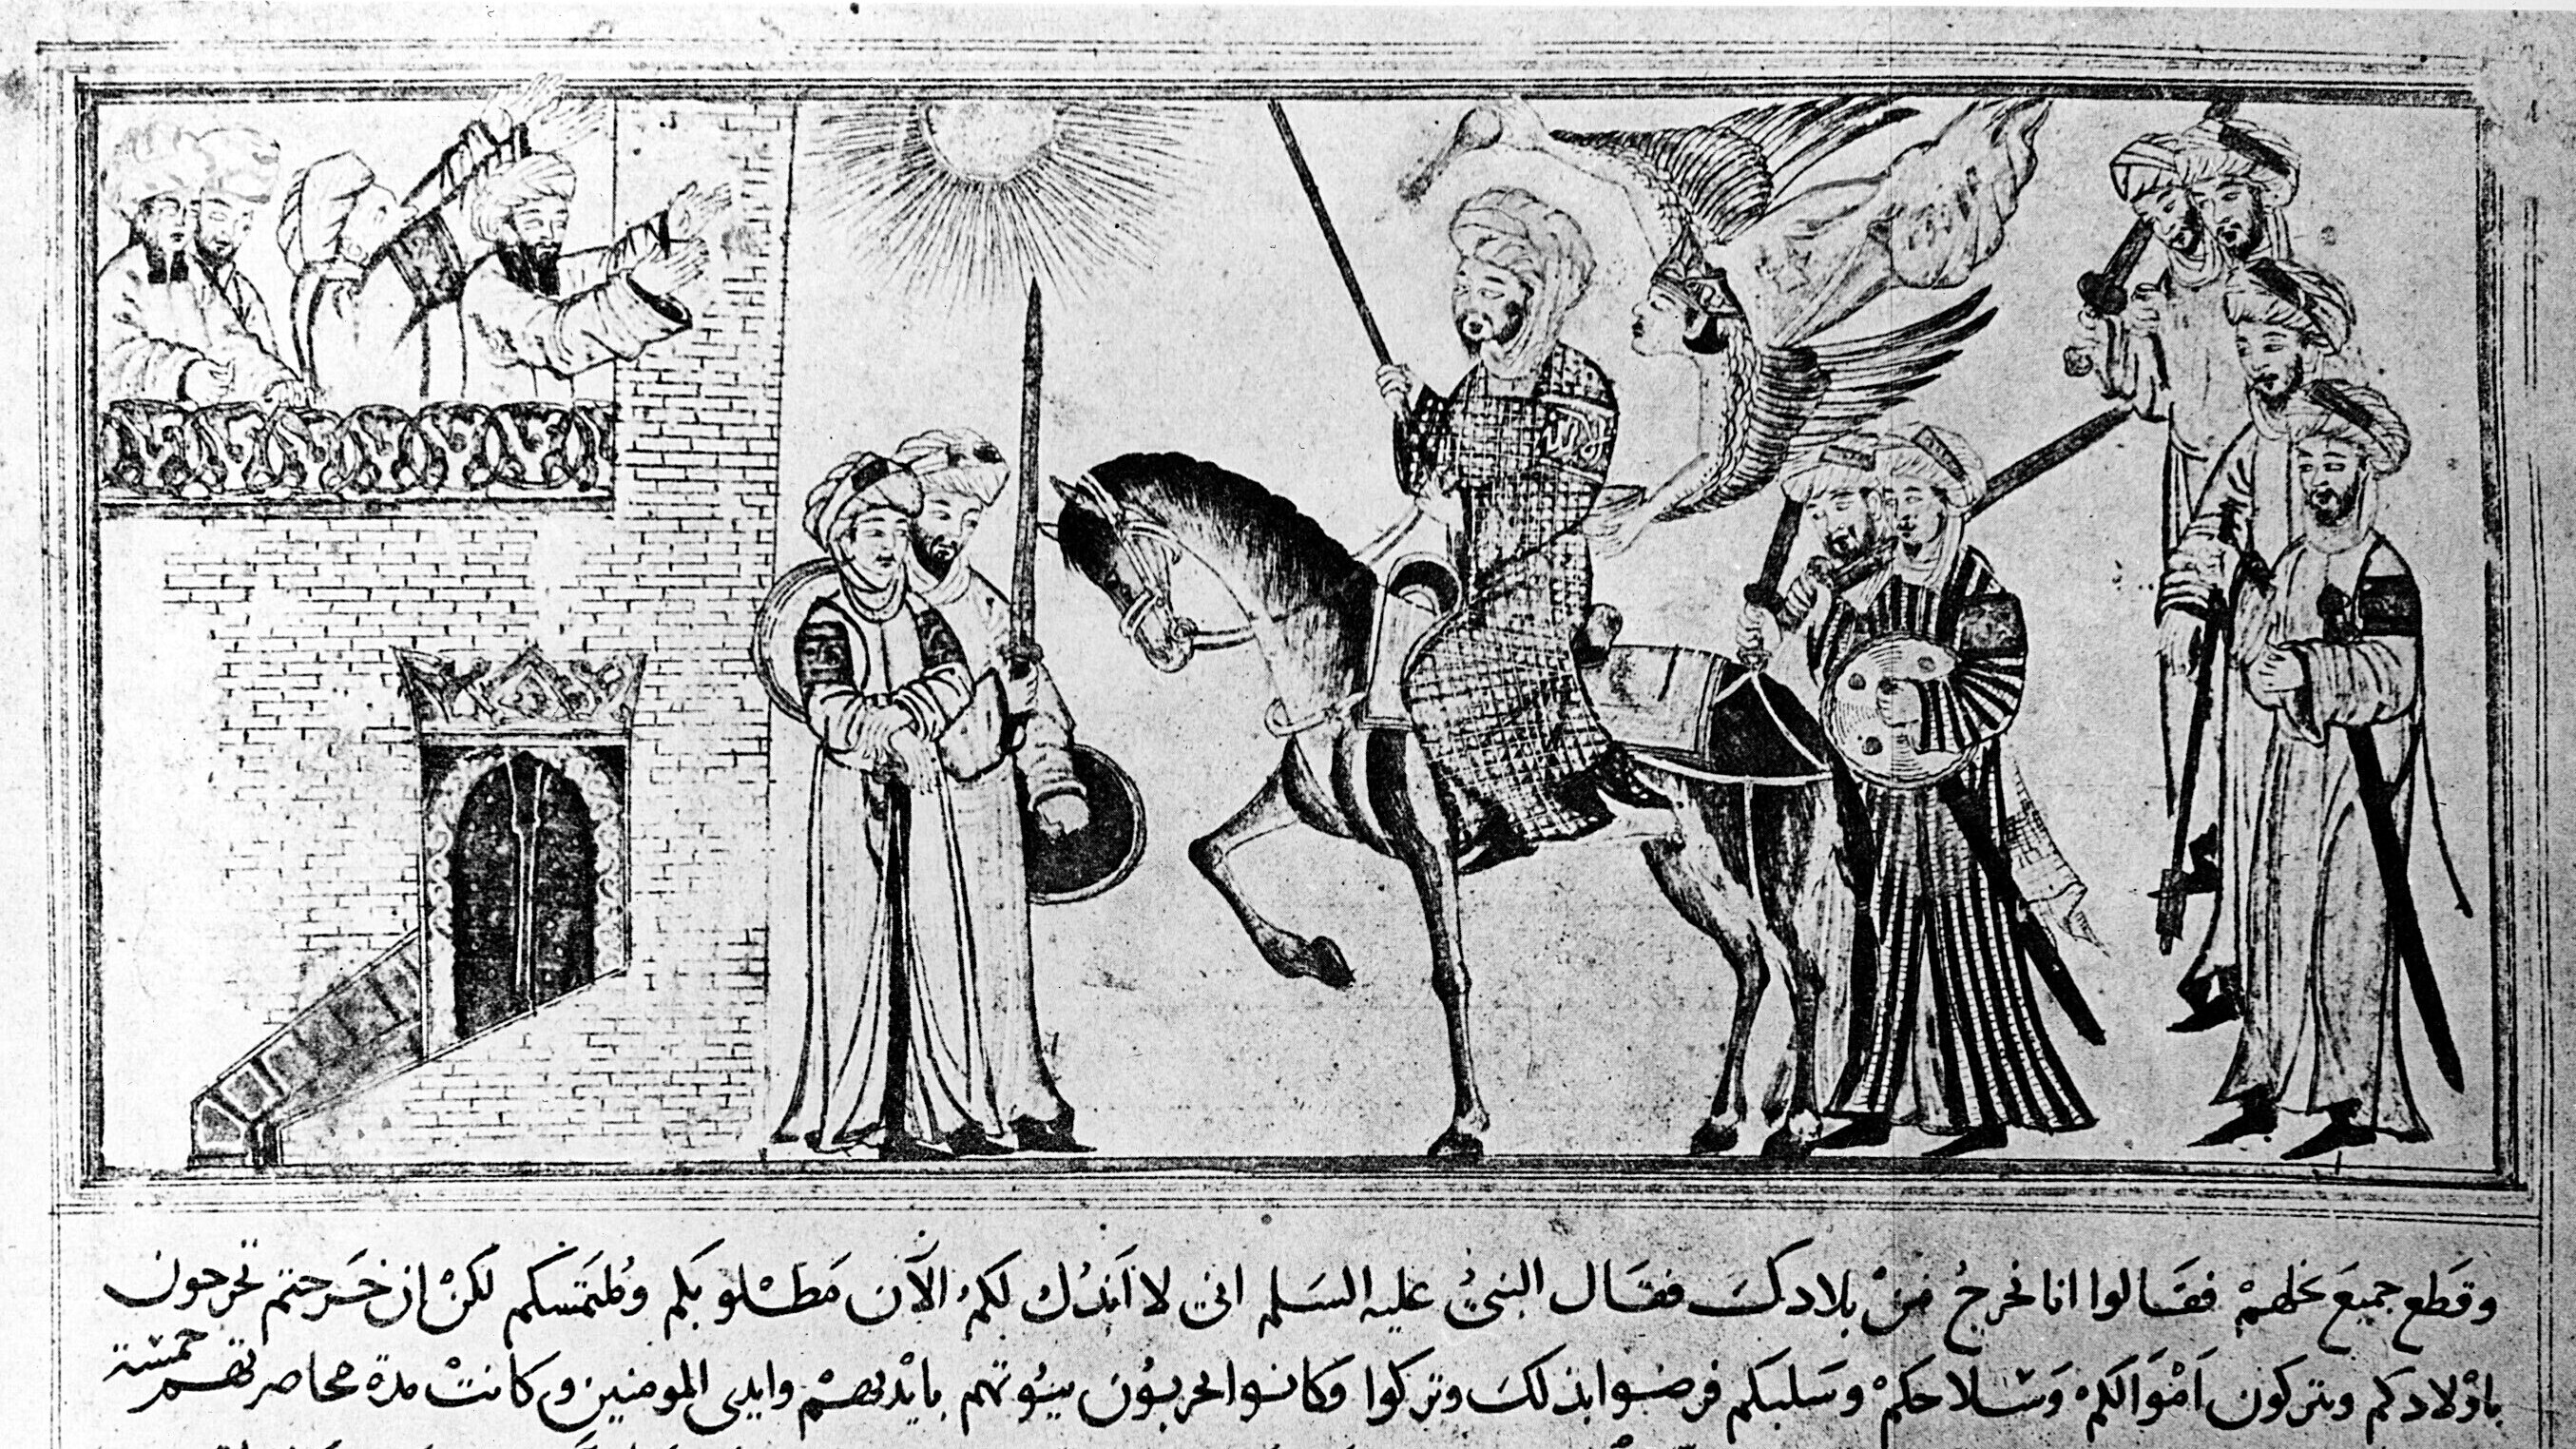 وقطع جميع نخلهم فقالوا انا نخرج من بلادك فقال النبي عليه السلم اني لا ابذل لكم الآن مطلوبكم وملتمسكم لكن ان خرجتم تخرجون
باولادكم وتتركون اموالكم وسلاحكم وسلبكم فرضوا بذلك وتركوا وكانوا يخربون بيوتهم بايديهم وايدي المومنين وكانت مدة محاصرتهم خمسة